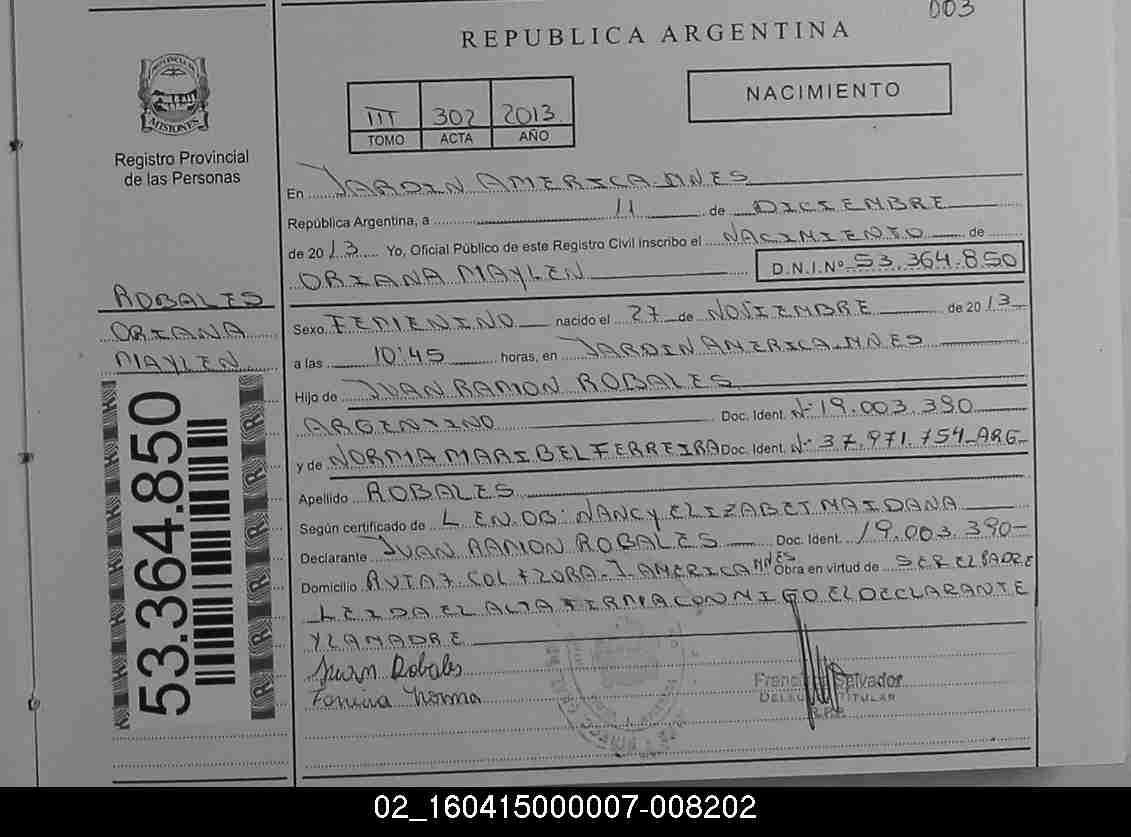 003
REPUBLICA ARGENTINA
PROVINCIA DE
MISIONES
Registro Provincial
de las Personas
III 302 2013
TOMO ACTA AÑO
NACIMIENTO
En JARDIN AMERICA.MNES
República Argentina, a 11 de DICIEMBRE
de 2013 Yo, Oficial Público de este Registro Civil inscribo el NACIMIENTO de
ORIANA MAYLEN D.N.I.Nº 53.364.850
ROBALES
ORIANA
MAYLEN
53.364.850
Sexo FEMIENINO nacido el 27 de NOVIEMBRE de 2013
a las 10:45 horas, en JARDIN AMERICA.MNES
Hijo de JUAN RAMON ROBALES
ARGENTINO Doc. Ident. Nº 19.003.390
y de NORMA MARIBEL FERREIRA Doc. Ident. Nº 37.971.754-ARG-
Apellido ROBALES
Según certificado de L EN.OB: NANCY ELIZABET MAIDANA
Declarante JUAN RAMON ROBALES Doc. Ident. 19.003.390-
Domicilio AMERICA MNES Obra en virtud de SER EL PADRE
LEIDA EL ALTA FIRMA CON MIGO EL DECLARANTE
Y LA MADRE
Juan Robales
Norma
Salvador
TITULAR
02_160415000007-008202